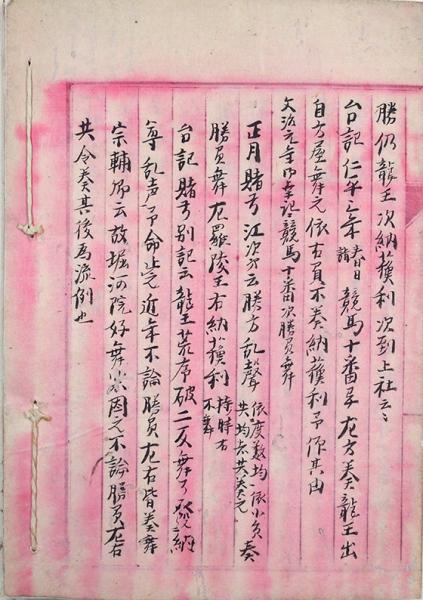 勝仍龍王次納蘓利次到上社云々
台記仁平三年 競馬十番了左方奏龍王出
自方屋舞之依右負不奏納蘓利予作其由
文治元年 記競馬十番次勝負舞
正月賭弓江次云勝方乱聲依度数均依小負奏
勝負舞左羅陵王右納蘓利持時右不舞
台記賭弓別記云龍王荒序破二反舞了 納
尋乱声予命止完近年不論勝負左右皆奏舞
宗輔卿云故堀河院好舞 因之不論勝負左右
共令奏其後為流例也